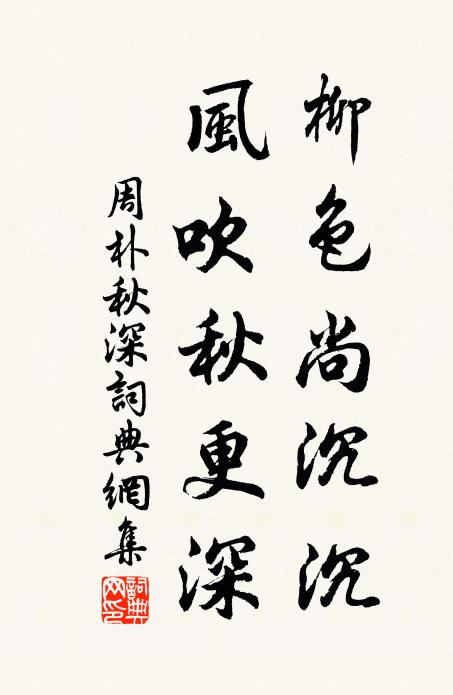 柳色尚沉沉
風吹秋更深
周朴秋深詞典網集
詞典網印